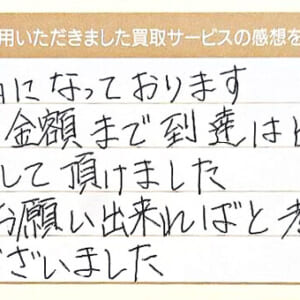 用いただきました買取サービスの感想を
になっております
金額まで到達は
して頂けました
お願い出来ればと考
ございました